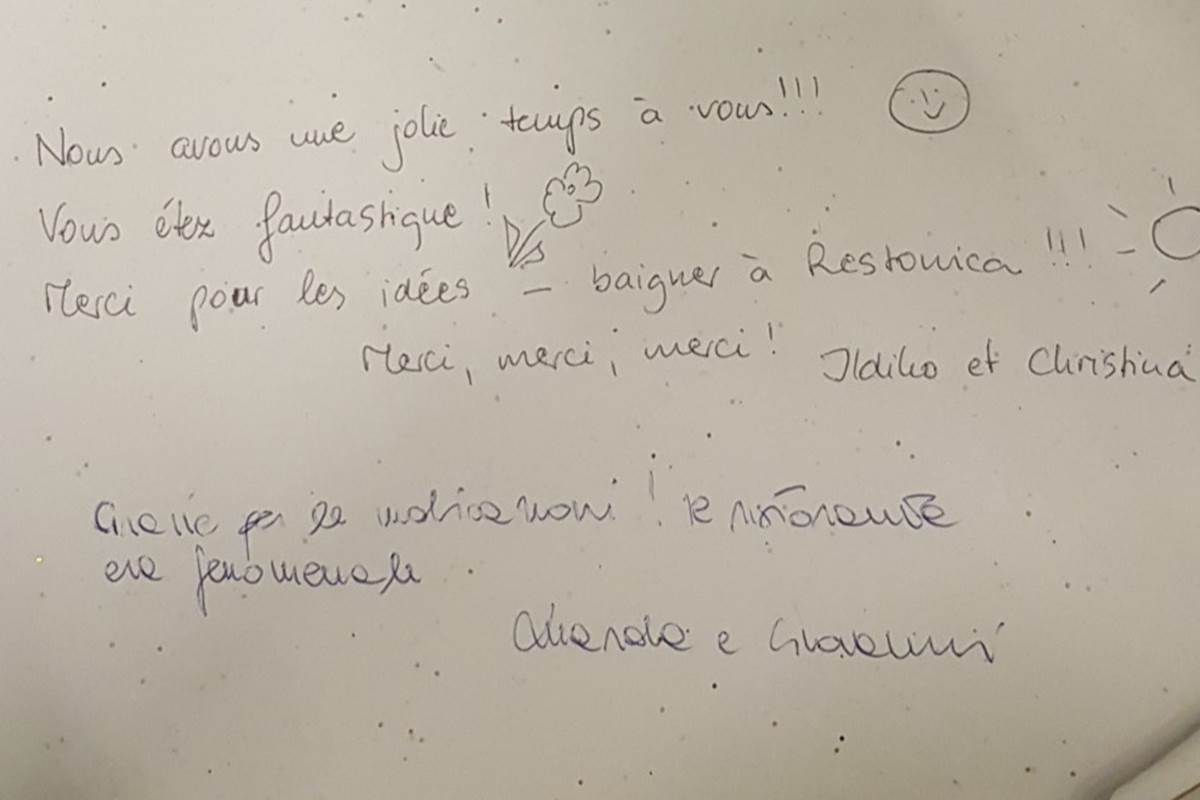 Nous avons une jolie temps à vous!!!
Vous étez fantastique!
Merci pour les idées – baigner à Restonica!!!
Merci, merci, merci! Ildiko et Christina
Grazie per le indicazioni! Il ristorante
era fenomenale
e Giovanni